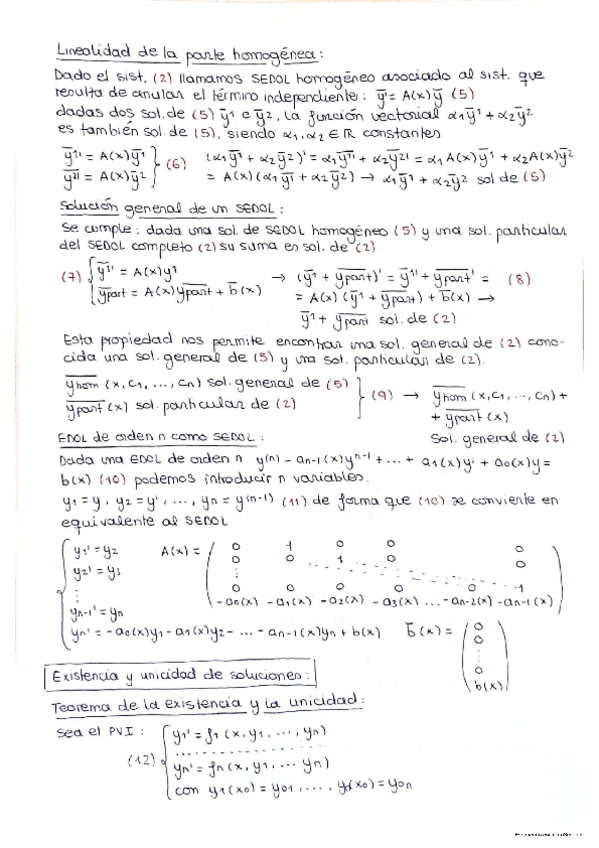 Linealidad de la parte homogénea:
Dado el sist. (2) llamamos SEDOL homogéneo asociado al sist. que
resulta de anular el término independiente: y̅' = A(x)y̅ (5)
dadas dos sol. de (5) y̅1 e y̅2, la función vectorial α1y̅1 + α2y̅2
es también sol. de (5), siendo α1, α2 ∈ ℝ constantes
y̅1' = A(x)y̅1 } (6) (α1y̅1 + α2y̅2)' = α1y̅1' + α2y̅2' = α1A(x)y̅1 + α2A(x)y̅2
y̅2' = A(x)y̅2 = A(x)(α1y̅1 + α2y̅2) → α1y̅1 + α2y̅2 sol de (5)
Solución general de un SEDOL:
Se cumple: dada una sol. de SEDOL homogéneo (5) y una sol. particular
del SEDOL completo (2) su suma es sol. de (2)
(7) { y̅1' = A(x)y1 → (y̅1 + y̅part)' = y̅1' + y̅part' = (8)
y̅part = A(x)y̅part + b̅(x) = A(x)(y̅1 + y̅part) + b̅(x) →
y̅1 + y̅part sol. de (2)
Esta propiedad nos permite encontrar una sol. general de (2) cono-
cida una sol. general de (5) y una sol. particular de (2).
y̅hom (x, c1, ..., cn) sol. general de (5) } (9) → y̅hom (x, c1, ..., cn) +
y̅part (x) sol. particular de (2) + y̅part (x)
EDOL de orden n como SEDOL: Sol. general de (2)
Dada una EDOL de orden n y(n) - an-1(x)yn-1 + ... + a1(x)y' + a0(x)y =
b(x) (10) podemos introducir n variables.
y1 = y, y2 = y', ..., yn = y(n-1) (11) de forma que (10) se conviente en
equivalente al SEDOL
y1' = y2 A(x) = ( 0 1 0 0 0
y2' = y3 0 0 1 0 0
⋮ ⋮
0 0 0 0 0 1
yn-1' = yn -a0(x) -a1(x) -a2(x) -a3(x) ... -an-2(x) -an-1(x) )
yn' = -a0(x)y1 - a1(x)y2 - ... - an-1(x)yn + b(x) b̅(x) = ( 0
0
⋮
0
b(x) )
Existencia y unicidad de soluciones:
Teorema de la existencia y la unicidad:
Sea el PVI: { y1' = f1 (x, y1, ..., yn)
(12) ..................
yn' = fn (x, y1 ... yn)
con y1(x0) = y01, ..., yn(x0) = y0n